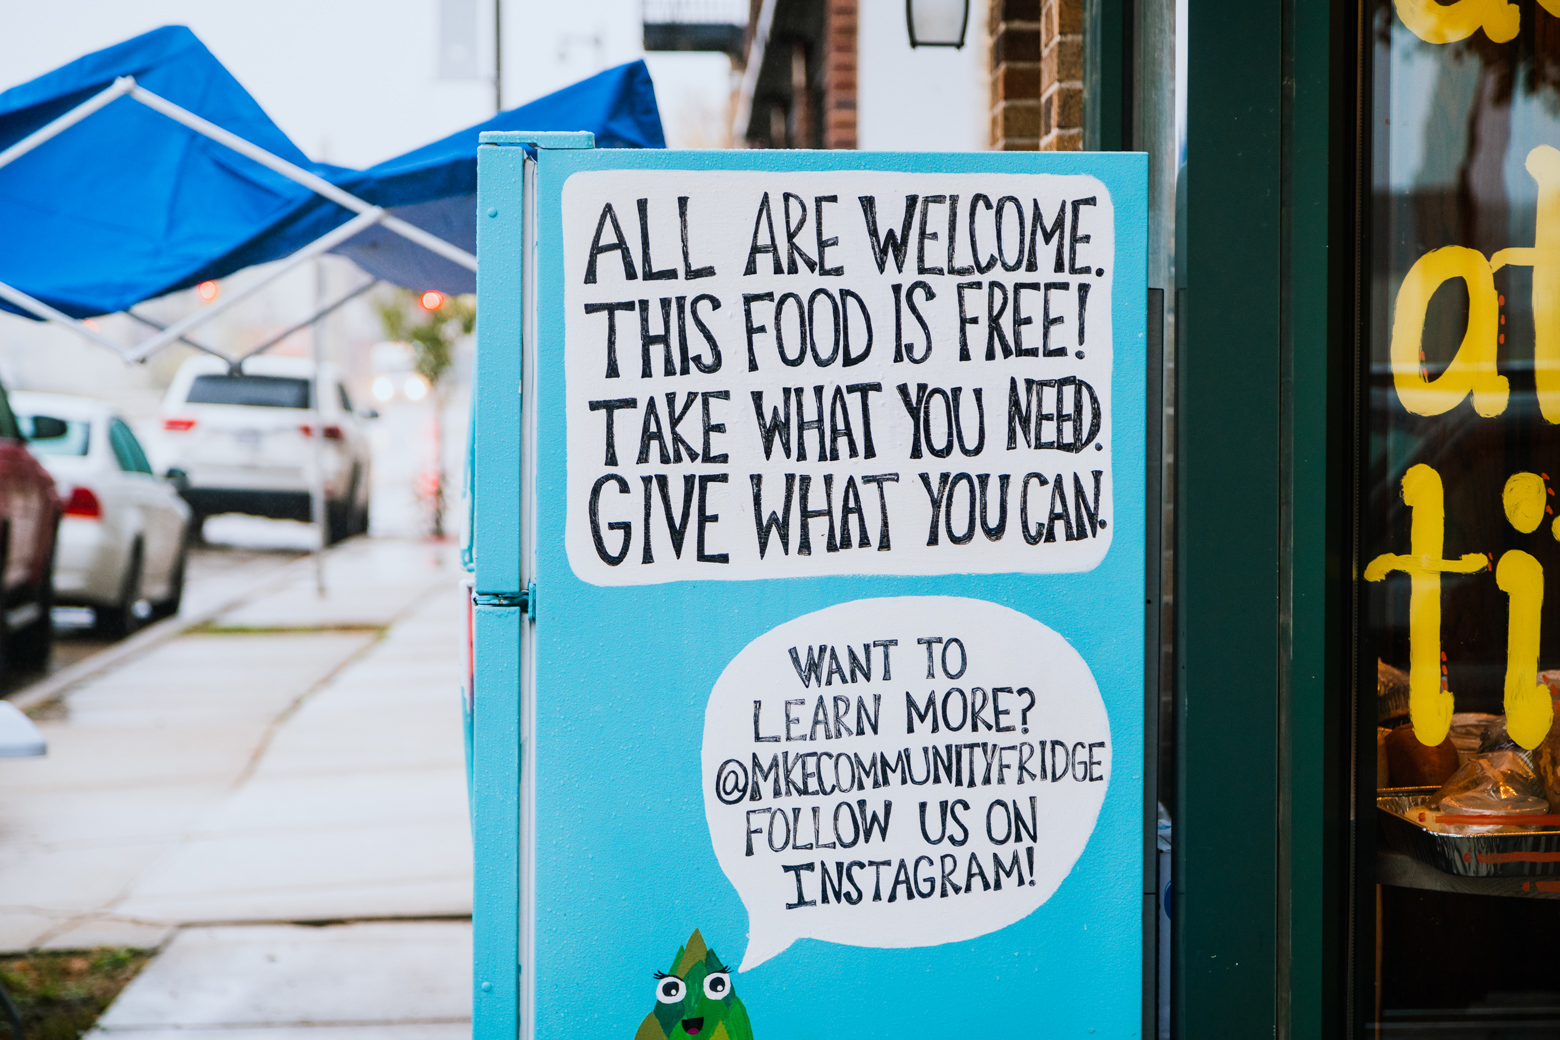 ALL ARE WELCOME.
THIS FOOD IS FREE!
TAKE WHAT YOU NEED.
GIVE WHAT YOU CAN.
WANT TO
LEARN MORE?
@MKECOMMUNITYFRIDGE
FOLLOW US ON
INSTAGRAM!